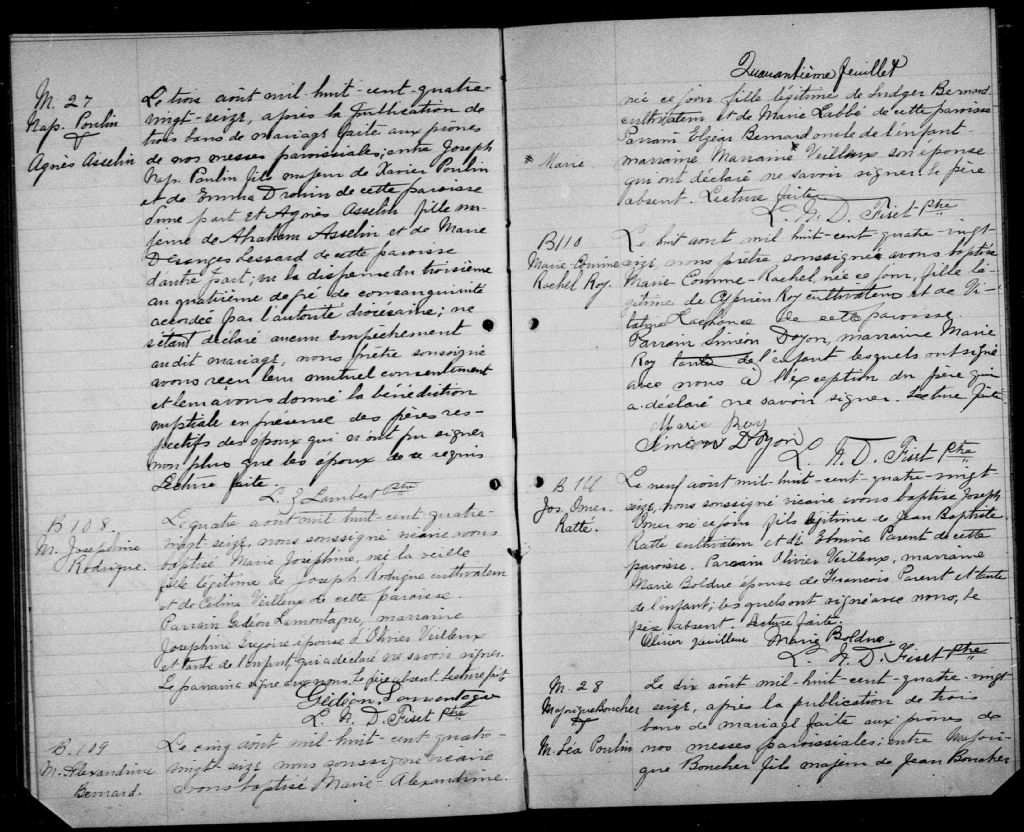 M. 27
Nap. Poulin
&
Agnès Asselin
Le trois août mil-huit-cent-quatre-
vingt-seize, après la publication de
trois bans de mariage faite aux prônes
de nos messes paroissiales; entre Joseph
Nap. Poulin fils majeur de Xavier Poulin
et de Emma Drouin de cette paroisse
d'une part et Agnès Asselin fille ma-
jeure de Abraham Asselin et de Marie
D Granges Lessard de cette paroisse
d'autre part; vu la dispense du troisième
au quatrième degré de consanguinité
accordée par l'autorité diocésaine; ne
s'étant déclaré aucun empêchement
au dit mariage, nous prêtre soussigné
avons reçu leur mutuel consentement
et leur avons donné la bénédiction
nuptiale en présence des pères res-
pectifs des époux qui n'ont pu signer
non plus que les époux de ce requis
Lecture faite.
L. Z. Lambert Ptre
B 108.
M. Josephine
Rodrigue.
Le quatre août mil-huit-cent-quatre-
vingt-seize, nous soussigné vicaire avons
baptisé Marie Josephine, née la veille
fille légitime de Joseph Rodrigue cultivateur
et de Célina Veilleux de cette paroisse.
Parrain Gédéon Lamontagne, marraine
Josephine Grégoire épouse d'Olivier Veilleux
et tante de l'enfant, qui a déclaré ne savoir signer.
Le parrain a signé avec nous, le père absent. Lecture fait
Gédéon Lamontagne
L. N. D. Fiset Ptre
B. 109
M. Alexandrine
Bernard.
Le cinq août mil-huit-cent quatre-
vingt-seize nous soussigné vicaire
avons baptisé Marie-Alexandrine.
Quarantième feuillet
née ce jour fille légitime de Ludger Bernard
cultivateur et de Marie Labbé de cette paroisse
Parrain Elzéar Bernard oncle de l'enfant
* Marie
marraine Marraine * Veilleux son épouse
qui ont déclaré ne savoir signer. le père
absent. Lecture faite.
L. N. D. Fiset Ptre
B110
Marie-Corinne
Rachel Roy.
Le huit août mil huit-cent quatre-vingt
seize, nous prêtre soussigné avons baptisé
Marie-Corinne-Rachel, née ce jour, fille lé-
gitime de Cyprien Roy cultivateur et de Vi-
taline Lachance de cette paroisse
Parrain Siméon Doyon, marraine Marie
Roy tante de l'enfant lesquels ont signé
avec nous à l'exception du père qui
a déclaré ne savoir signer. Lecture faite
Marie Roy
Simeon Doyon
L. N. D. Fiset Ptre
B 111
Jos. Omer.
Ratté.
Le neuf août mil-huit-cent-quatre-vingt
seize, nous soussigné vicaire avons baptisé Joseph
Omer né ce jour fils légitime de Jean Baptiste
Ratté cultivateur et de Edmire Parent de cette
paroisse. Parrain Olivier Veilleux, marraine
Marie Bolduc épouse de François Parent et tante
de l'enfant; lesquels ont signé avec nous, le
père absent. Lecture faite.
Olivier Marie Bolduc.
L. N. D. Fiset Ptre
M. 28
Majorique Boucher
&
M. Léa Poulin
Le dix août mil-huit-cent-quatre-vingt
seize, après la publication de trois
bans de mariage faite aux prônes de
nos messes paroissiales; entre Majori-
que Boucher fils majeur de Jean Boucher